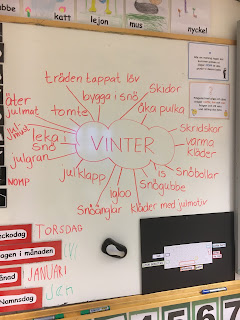 katt
lejon
mus
nyckel
träden tappat löv
bygga i snö
Skidor
åka pulka
tomte
äter
julmat
leka i
snö
julgran
VINTER
Skridskor
varma
kläder
Snöbollar
is
Snögubbe
julklapp
igloo
Snöänglar
kläder med julmotiv
NOMP
TORSDAG
agen i månaden
JANUARI
Namnsdag